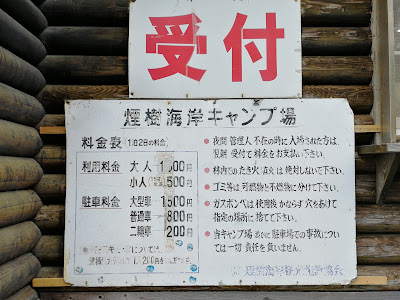 受付
煙樹海岸キャンプ場
料金表 1泊2日の料金
利用料金 大人 1,500円
小人 500円
駐車料金 大型車 1,500円
普通車 800円
二輪車 200円
夜間 管理人 不在の時に入場された方は、
翌朝 受付で料金をお支払い下さい。
林内でのたき火(直火)は絶対しないで下さい。
ゴミ等は可燃物と不燃物に分けて下さい。
ガスボンベは使用後かならず穴をあけて
指定の場所に捨てて下さい。
当キャンプ場 並びに 駐車場での事故につい
ては一切 責任を負いません。